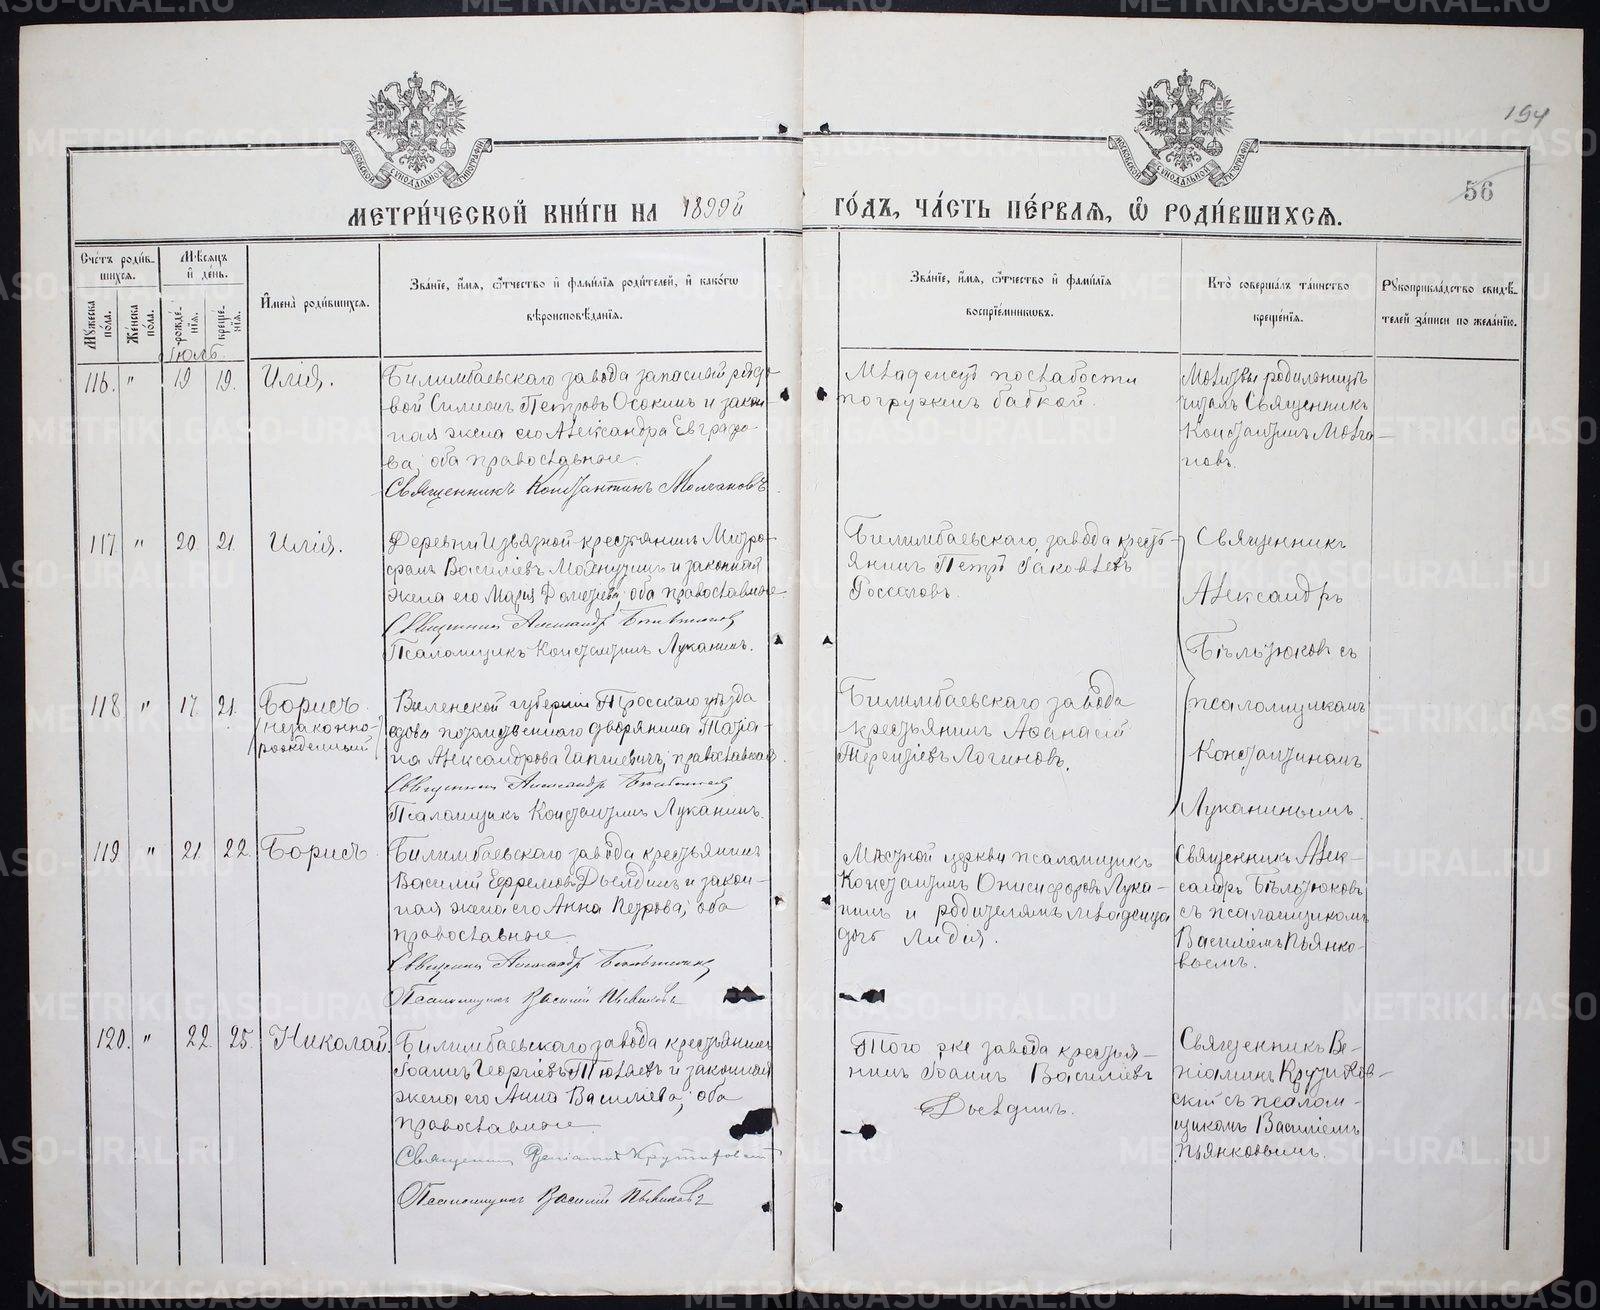 194
56
МЕТРИ́ЧЕСКОЙ КНИ́ГИ НА 1899й ГО́ДЪ, ЧА́СТЬ ПЕ́РВАЯ, Ѡ РОДИ́ВШИХСЯ.
Сче́тъ роди́вшихся.
Мꙋ́жеска по́ла.
Же́нска по́ла.
Мѣ́сяцъ и҆ де́нь.
рожде́нїя.
креще́нїя.
И҆мена̀ роди́вшихся.
Зва́нїе, и҆́мя, ѻ҆́тчество и҆ фамі́лїѧ роди́телей, и҆ како́гѡ
вѣроисповѣ́данїѧ.
Зва́нїе, и҆́мя, ѻ҆́тчество и҆ фамі́лїѧ
воспрїе́мниковъ.
Кто̀ соверша́лъ та́инство
креще́нїѧ.
Рꙋкоприкла́дство свидѣ́-
телей за́писи по жела́нїю.
Іюль
116. " 19 19. Илія.
Билимбаевскаго завода запасный рядо-
вой Симеонъ Петровъ Осокинъ и закон-
ная жена его Александра Евграфо-
ва; оба православные.
Священникъ Константинъ Молчановъ.
Младенецъ по слабости
погружинъ бабкой.
Молитвы родильницъ
читалъ Священникъ
Константинъ Молча-
новъ.
117. " 20. 21. Илія.
Деревни Извязной крестьянинъ Митро-
фанъ Василіевъ и законная
жена его Марія оба православные
Священникъ Александръ Бѣльтюковъ
Псаломщикъ Константинъ Луканинъ.
Билимбаевскаго завода кресть-
янинъ Петръ Іаковлевъ
Россаловъ.
Священникъ
Александръ
Бѣльтюковъ съ
псаломщикомъ
Константиномъ
Луканинымъ.
118 " 17. 21. Борисъ.
(незаконно-
рожденный)
Виленской губерніи Трокскаго уѣзда
вдова потомственнаго дворянина Татіа-
на Александрова православная.
Священникъ Александръ Бѣльтюковъ
Псаломщикъ Константинъ Луканинъ.
Билимбаевскаго завода
крестьянинъ Аѳанасій
Терентіевъ Логиновъ.
119 " 21. 22. Борисъ.
Билимбаевскаго завода крестьянинъ
Василій Ефремовъ Дылдинъ и закон-
ная жена его Анна Петрова; оба
православные.
Священникъ Александръ Бѣльтюковъ
Псаломщикъ Василій Пьянковъ
Мѣстной церкви псаломщикъ
Константинъ Онисифоровъ Лука-
нинъ и родителямъ младенца
дочь Лидія.
Священникъ Алек-
сандръ Бѣльтюковъ
съ псаломщикомъ
Василіемъ Пьянко-
вымъ.
120. " 22. 25. Николай.
Билимбаевскаго завода крестьянинъ
Іоаннъ Георгіевъ Тюлаевъ и законная
жена его Анна Василіева; оба
православные.
Священникъ Веніаминъ Крутиховскій
Псаломщикъ Василій Пьянковъ
Того же завода крестья-
нинъ Іоаннъ Василіевъ
Дылдинъ.
Священникъ Ве-
ніаминъ Крутихов-
скій съ псалом-
щикомъ Василіемъ
Пьянковымъ.
METRIKI.GASO-URAL.RU